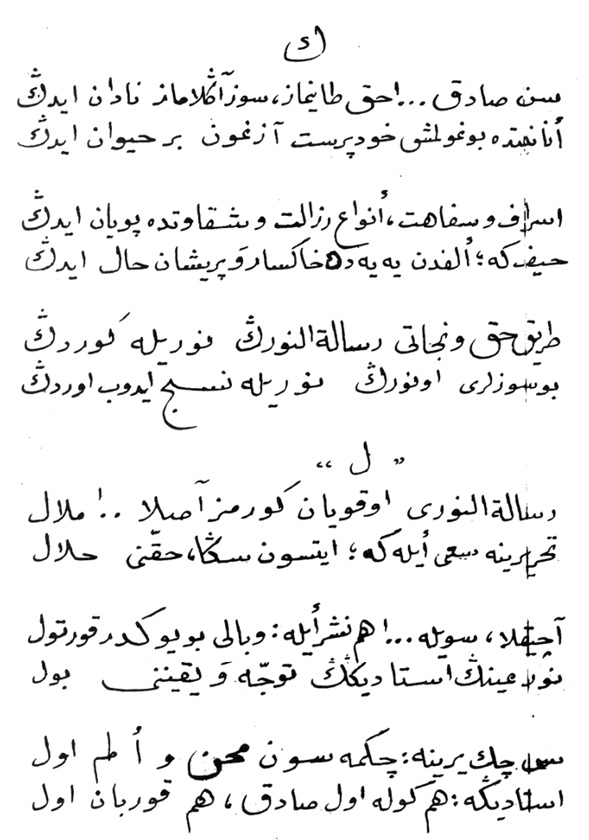 ك
سن صادق ...! حق طانيماز، سوز آڭلاماز نادان ايدڭ
أنانيتده بوغولمش خودپرست آزغون بر حيوان ايدڭ
اسراف و سفاهت، أنواع رزالت و شقاوتده پويان ايدڭ
حيف كه؛ ألفدن يه يه ده خاكسار و پريشان حال ايدڭ
طريق حق و نجاتى رسالة النورڭ نوريله كوردڭ
بو سوزلرى او نورڭ نوريله نسج ايدوب اوردڭ
" ل "
رسالة النورى اوقويان كورمز آصلا ..! ملال
تحريرينه سعى أيله كه؛ ايتسون سڭا، حقّنى حلال
آچيقلا، سويله ...! هم نشر أيله: وبالى بويوكدر قورتول
نور عينڭ استاديڭڭ توجّه وَ يقيننى بول
سن چك يرينه: چكمه سون محن و أ لم اول
استاديڭه: هم كوله اول صادق، هم قوربان اول